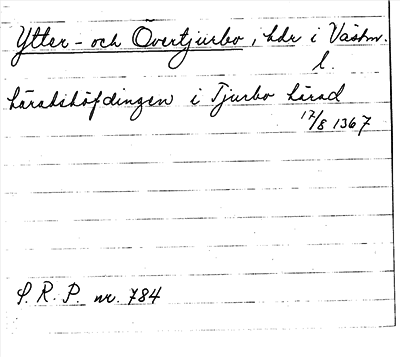 Ytter- och Övertjurbo, hdr i Västm.
l.
häradshöfdingen i Tjurbo härad
17/8 1367
S. R. P. nr. 784